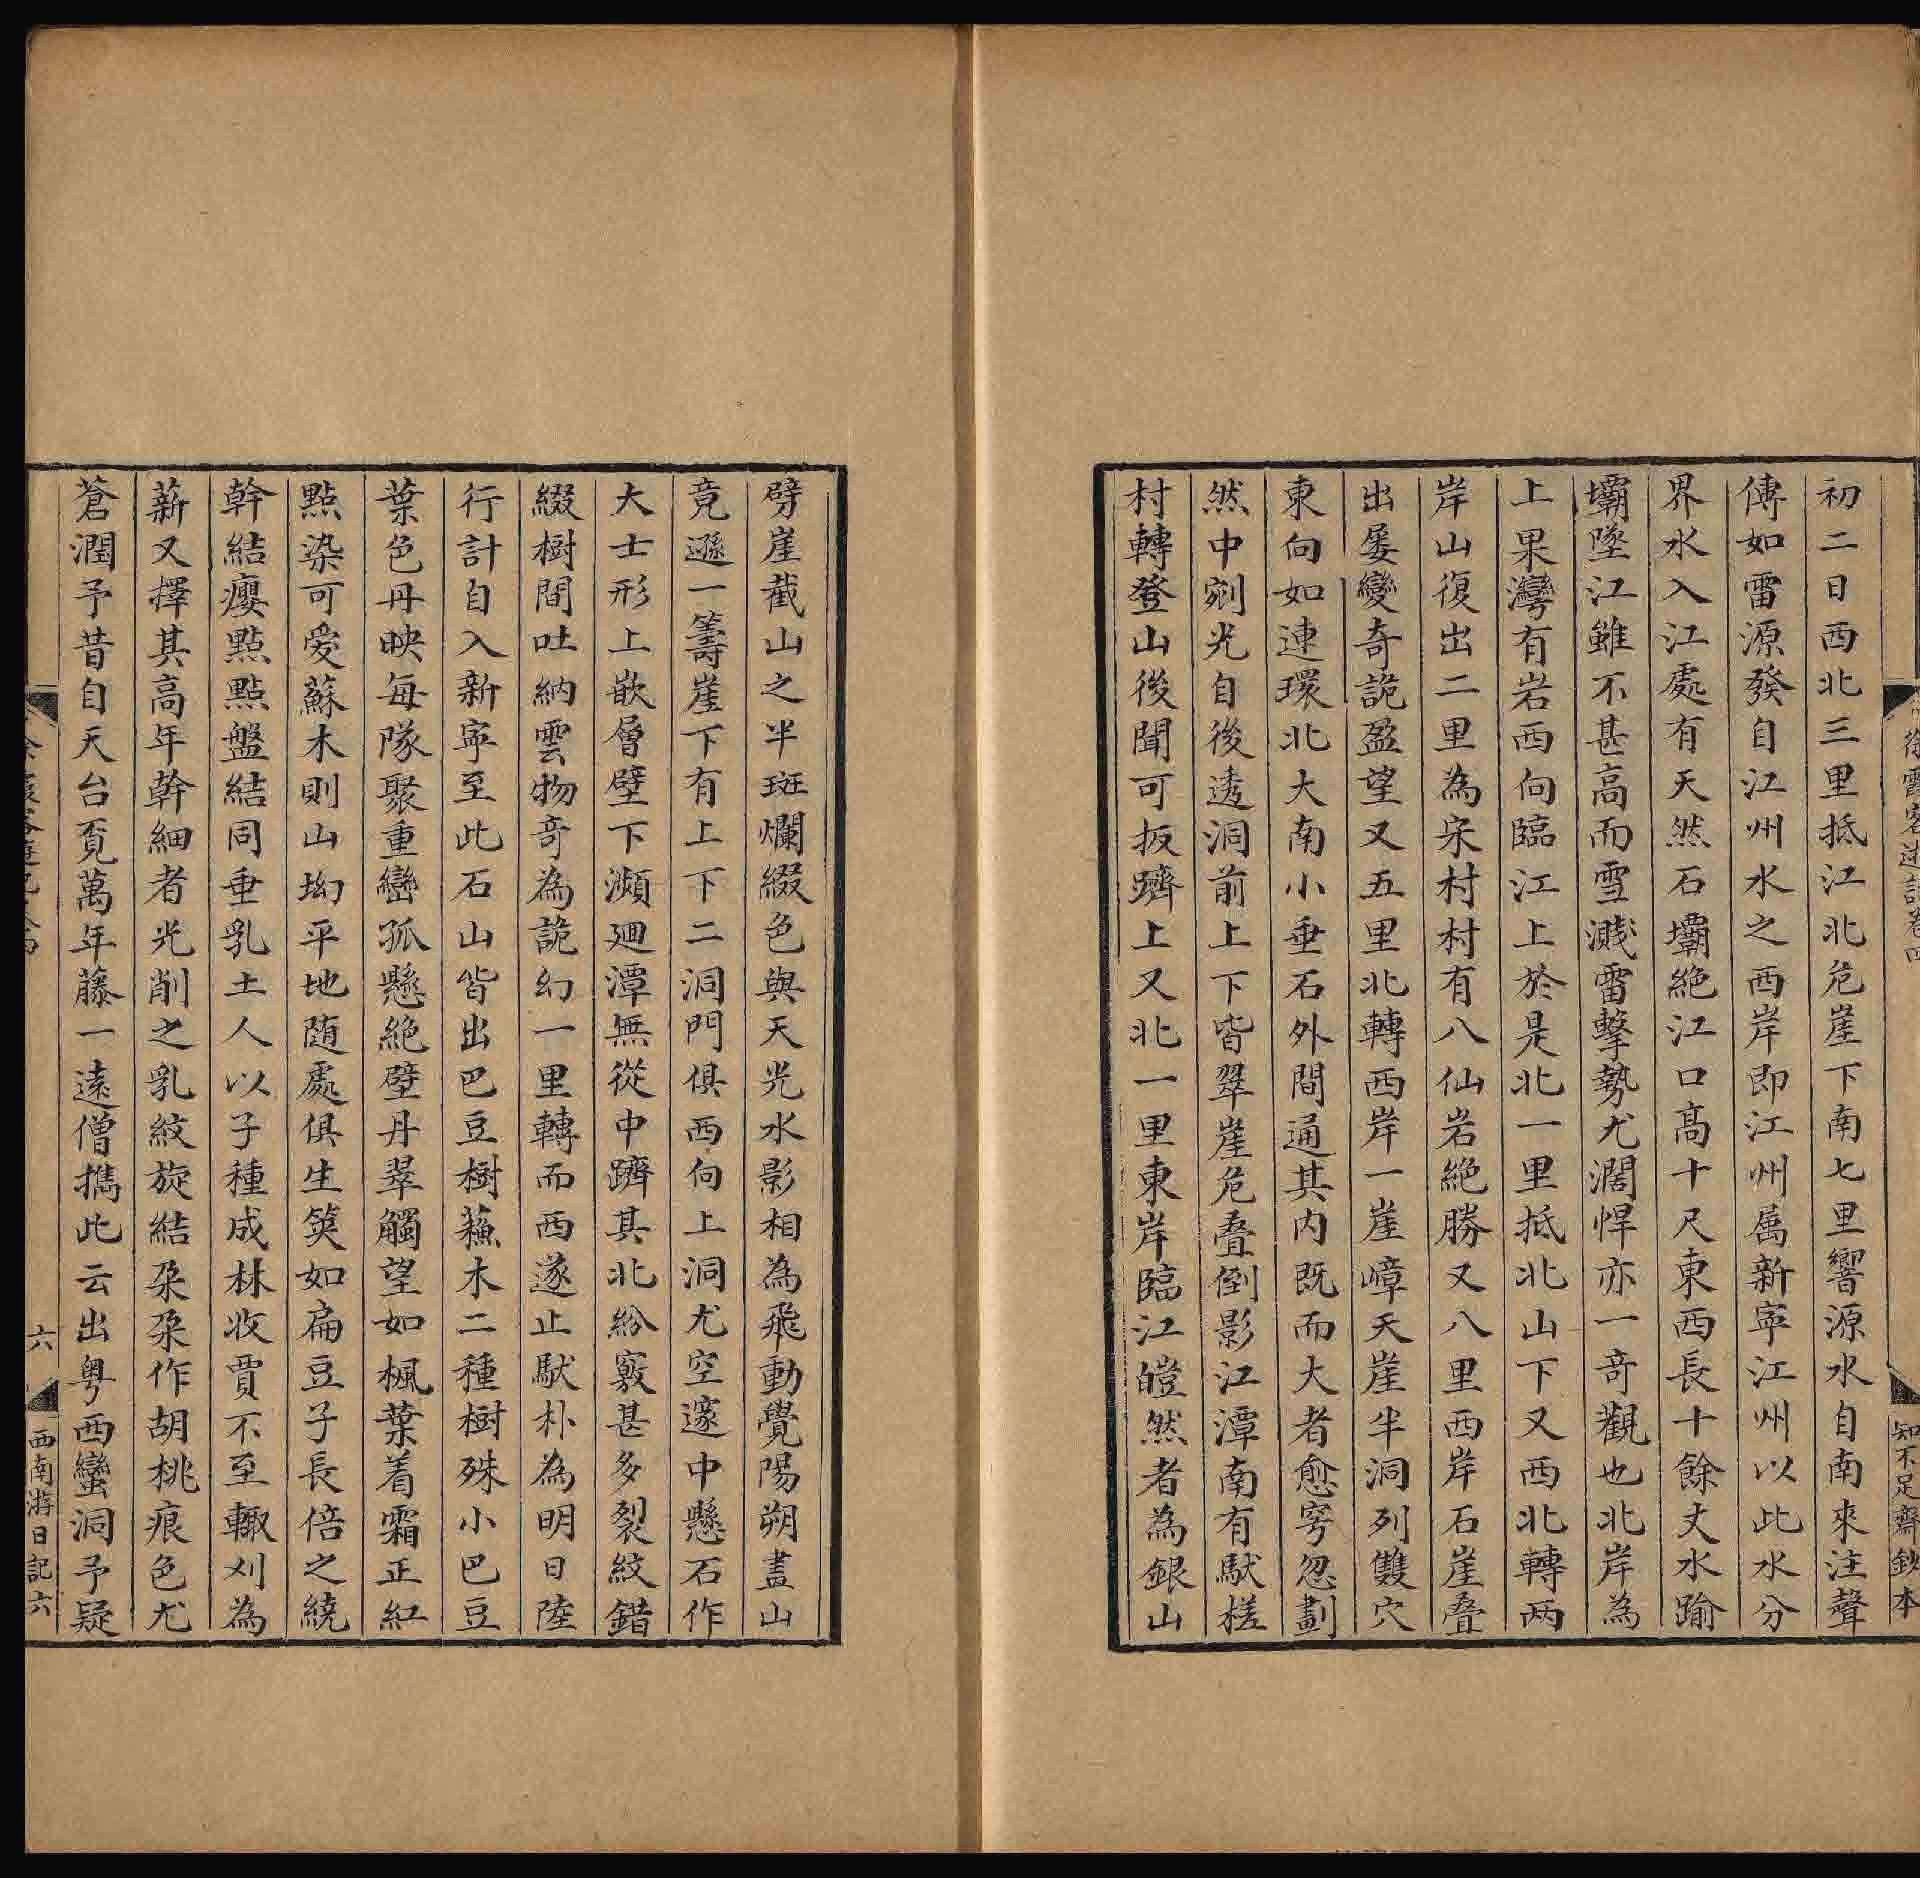 徐霞客遊記卷四
知不足齋鈔本
初二日西北三里抵江北危崖下南七里響源水自南來注聲
傳如雷源發自江州水之西岸即江州属新寕江州以此水分
界水入江處有天然石壩絶江口髙十尺東西長十餘丈水踰
壩墜江雖不甚高而雪濺雷擊勢尤濶悍亦一竒觀也北岸為
上果灣有岩西向臨江上於是北一里抵北山下又西北轉两
岸山復出二里為宋村村有八仙岩絶勝又八里西岸石崖叠
出屡變奇詭盈望又五里北轉西岸一崖嶂天崖半洞列雙穴
東向如連環北大南小垂石外間通其内既而大者愈穹忽劃
然中剜光自後透洞前上下皆翠崖危叠倒影江潭南有馱樣
村轉登山後聞可扳躋上又北一里東岸臨江皚然者為銀山
劈崖截山之半斑斕綴色與天光水影相為飛動覺陽朔畫山
竟遜一籌崖下有上下二洞門俱西向上洞尤空邃中懸石作
大士形上嵌層壁下瀕廻潭無從中躋其北紛竅甚多裂紋錯
綴樹間吐納雲物竒為詭幻一里轉而西遂止馱朴為明日陸
行計自入新寕至此石山皆出巴豆樹蘓木二種樹殊小巴豆
葉色丹映每隊聚重巒孤懸絶壁丹翠觸望如楓葉着霜正紅
點染可愛蘇木則山坳平地随處俱生筴如扁豆子長倍之繞
幹結癭點點盤結同垂乳土人以子種成林收賈不至輙刈為
薪又擇其高年幹細者光削之乳紋旋結朶朶作胡桃痕色尤
蒼潤予昔自天台覔萬年藤一遠僧擕此云出粤西蠻洞予疑
六
西南游日記六